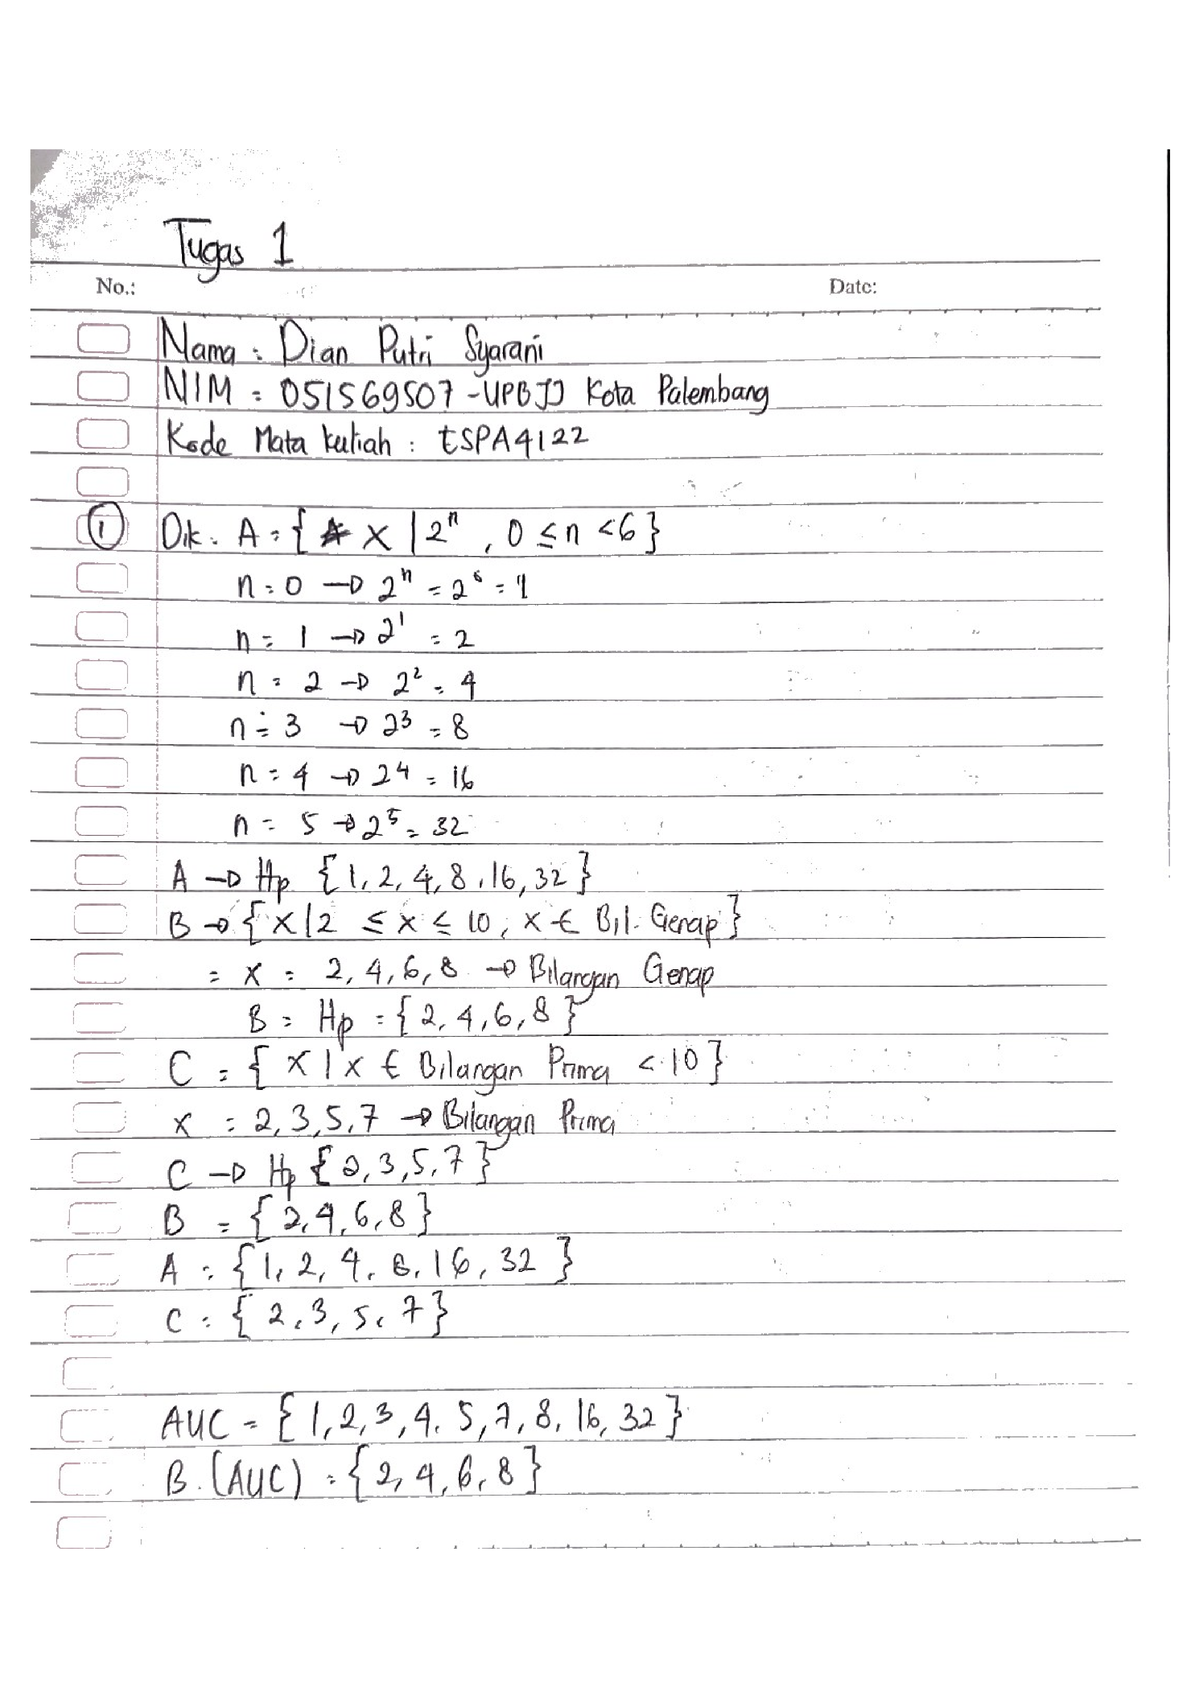 Tugas 1
No.: Date:
Nama : Dian Putri Syarani
NIM : 051569507 - UPBJJ Kota Palembang
Kode Mata kuliah : tSPA4122
① Dik : A = { x | 2ⁿ , 0 ≤ n < 6 }
n = 0 → 2ⁿ = 2⁰ = 1
n = 1 → 2¹ = 2
n = 2 → 2² = 4
n = 3 → 2³ = 8
n = 4 → 2⁴ = 16
n = 5 → 2⁵ = 32
A → Hp { 1, 2, 4, 8, 16, 32 }
B → { x | 2 ≤ x ≤ 10, x € Bil. Genap }
= x = 2, 4, 6, 8 → Bilangan Genap
B = Hp = { 2, 4, 6, 8 }
C = { x | x € Bilangan Prima < 10 }
x = 2, 3, 5, 7 → Bilangan Prima
C → Hp { 2, 3, 5, 7 }
B = { 2, 4, 6, 8 }
A = { 1, 2, 4, 8, 16, 32 }
C = { 2, 3, 5, 7 }
AUC = { 1, 2, 3, 4, 5, 7, 8, 16, 32 }
B. (AUC) = { 2, 4, 6, 8 }